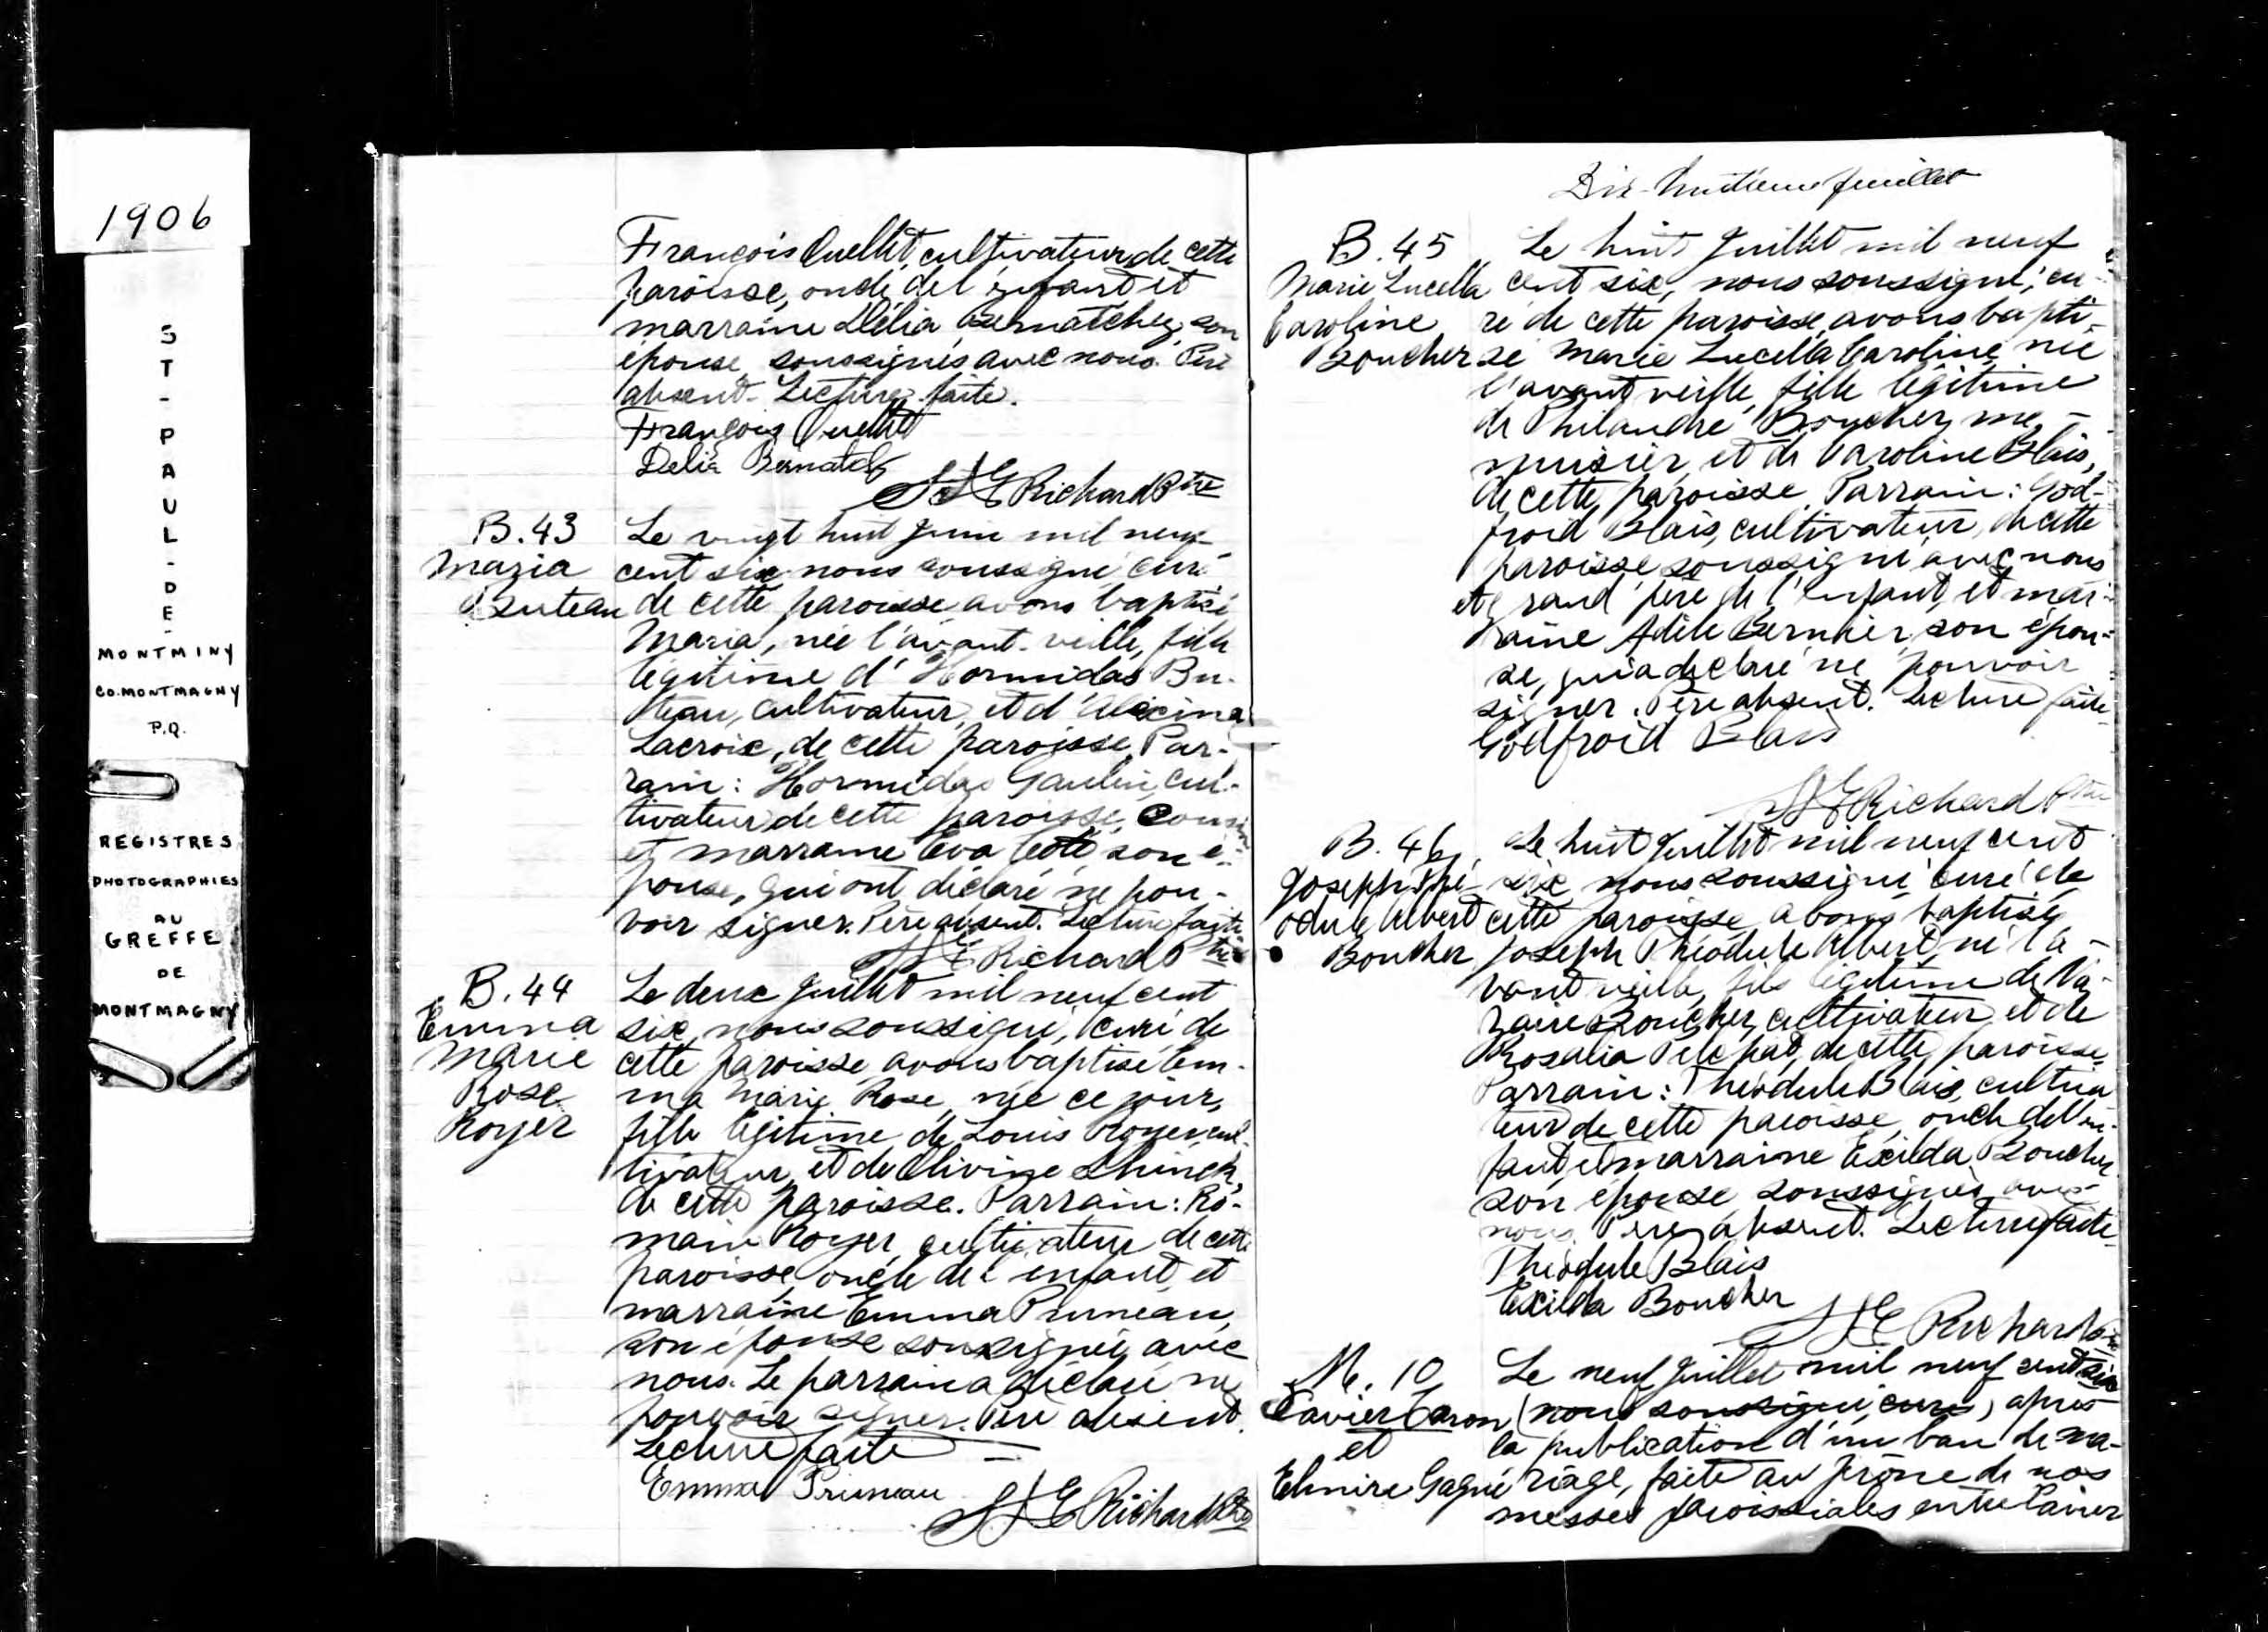 1906
ST-PAUL-DE-
MONTMINY
CO. MONTMAGNY
P.Q.
REGISTRES
PHOTOGRAPHIES
AU
GREFFE
DE
MONTMAGNY
François Ouellet, cultivateur de cette
paroisse, oncle de l'enfant et
marraine Délia Bernatchez, son
épouse soussignés avec nous. Père
absent. Lecture faite.
François Ouellet
Delia Bernatch
Richard Ptre
B. 43
Maria
Buteau
Le vingt huit Juin mil neuf
cent six nous soussigné curé
de cette paroisse avons baptisé
Maria, née l'avant-veille, fille
légitime d'Hormidas Bu-
teau, cultivateur, et d'
Lacroix, de cette paroisse. Par-
rain: Hormidas Gaulin, cul-
tivateur de cette paroisse, cousin
et marraine Eva Coté, son é-
pouse, qui ont déclaré ne pou-
voir signer. Père absent. Lecture faite
Richard Ptre
B. 44
Emma
Marie
Rose
Royer
Le deux Juillet mil neuf cent
six, nous soussigné, curé de
cette paroisse avons baptisé Em-
ma Marie Rose, née ce jour,
fille légitime de Louis Royer, cul-
tivateur, et de
de cette paroisse. Parrain: Ro-
main Royer, cultivateur de cette
paroisse, oncle de l'enfant, et
marraine Emma Pruneau,
son épouse soussignée avec
nous. Le parrain a déclaré ne
pouvoir signer. Père absent.
Lecture faite
Emma Pruneau
Richard Ptre
Dix-huitième feuillet
B. 45
Marie Lucella
Caroline
Boucher
Le huit Juillet mil neuf
cent six, nous soussigné, cu-
ré de cette paroisse, avons bapti-
sé Marie Lucella Caroline, née
l'avant veille, fille légitime
de Philandre Boucher, me-
nuisier, et de Caroline Blais,
de cette paroisse. Parrain: God-
froid Blais, cultivateur, de cette
paroisse soussigné avec nous
et grand père de l'enfant, et mar-
raine Adèle Bernier, son épou-
se, qui a déclaré ne pouvoir
signer. Père absent. Lecture faite
Godfroid Blais
Richard Ptre
B. 46
Joseph Thé-
odule Albert
Boucher
Le huit Juillet mil neuf cent
six nous soussigné curé de
cette paroisse avons baptisé
Joseph Théodule Albert, né l'a-
vant veille, fils légitime de Na-
zaire Boucher, cultivateur et de
Rosalia Pelchat, de cette paroisse.
Parrain: Théodule Blais, cultiva
teur de cette paroisse, oncle de l'en-
fant, et marraine Exilda Boucher
son épouse soussignés avec
nous. Père absent. Lecture faite
Théodule Blais
Exilda Boucher
Richard
M. 10
Xavier Caron
et
Elmire Gagné
Le neuf Juillet mil neuf cent six
(nous soussigné, curé) après
la publication d'un ban de ma-
riage, faite au prône de nos
messes paroissiales entre Xavier